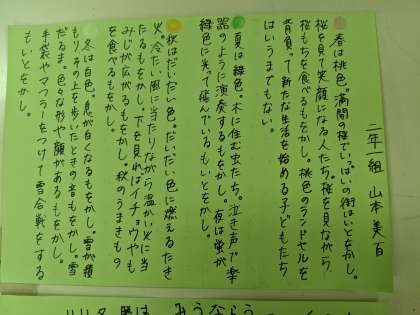 二年一組 山本美百
春は桃色。満開の桜でいっぱいの街はいとをかし。
桜を見て笑顔になる人たち。桜を見ながら
桜もちを食べるもをかし。桃色のランドセルを
背負って新たな生活を始める子どもたち
はいうまでもない。
夏は緑色。木に住む虫たち。泣き声で楽
器のように演奏するもをかし。夜は蛍が
緑色に光って飛んでいるもいとをかし。
秋はだいだい色。だいだい色に燃えるたき
火。冷たい風に当たりながら温かい火に当
たるもをかし。下を見ればイチョウやも
みじが広がるもをかし。秋のうまきもの
を食べるもをかし。
冬は白色。息が白くなるもをかし。雪が積
もり、その上を歩いたときの音もをかし。雪
だるま。色々な形や顔があるもをかし。
手袋やマフラーをつけて雪合戦をする
もいとをかし。